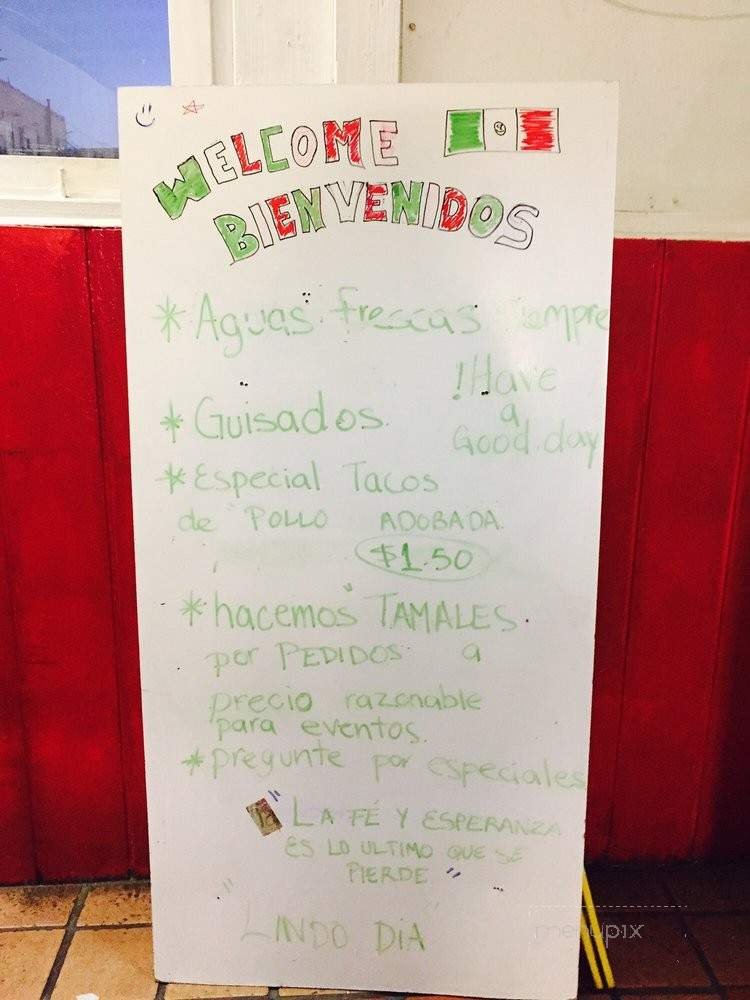 WELCOME
BIENVENIDOS
* Aguas frescas siempre
!Have
a
Good day
* Guisados.
* Especial Tacos
de POLLO ADOBADA.
$1.50
* hacemos TAMALES.
por PEDIDOS a
precio razonable
para eventos.
* pregunte por especiales
" LA FÉ Y ESPERANZA
ES LO ULTIMO QUE SE
PIERDE "
LINDO DIA
menupix